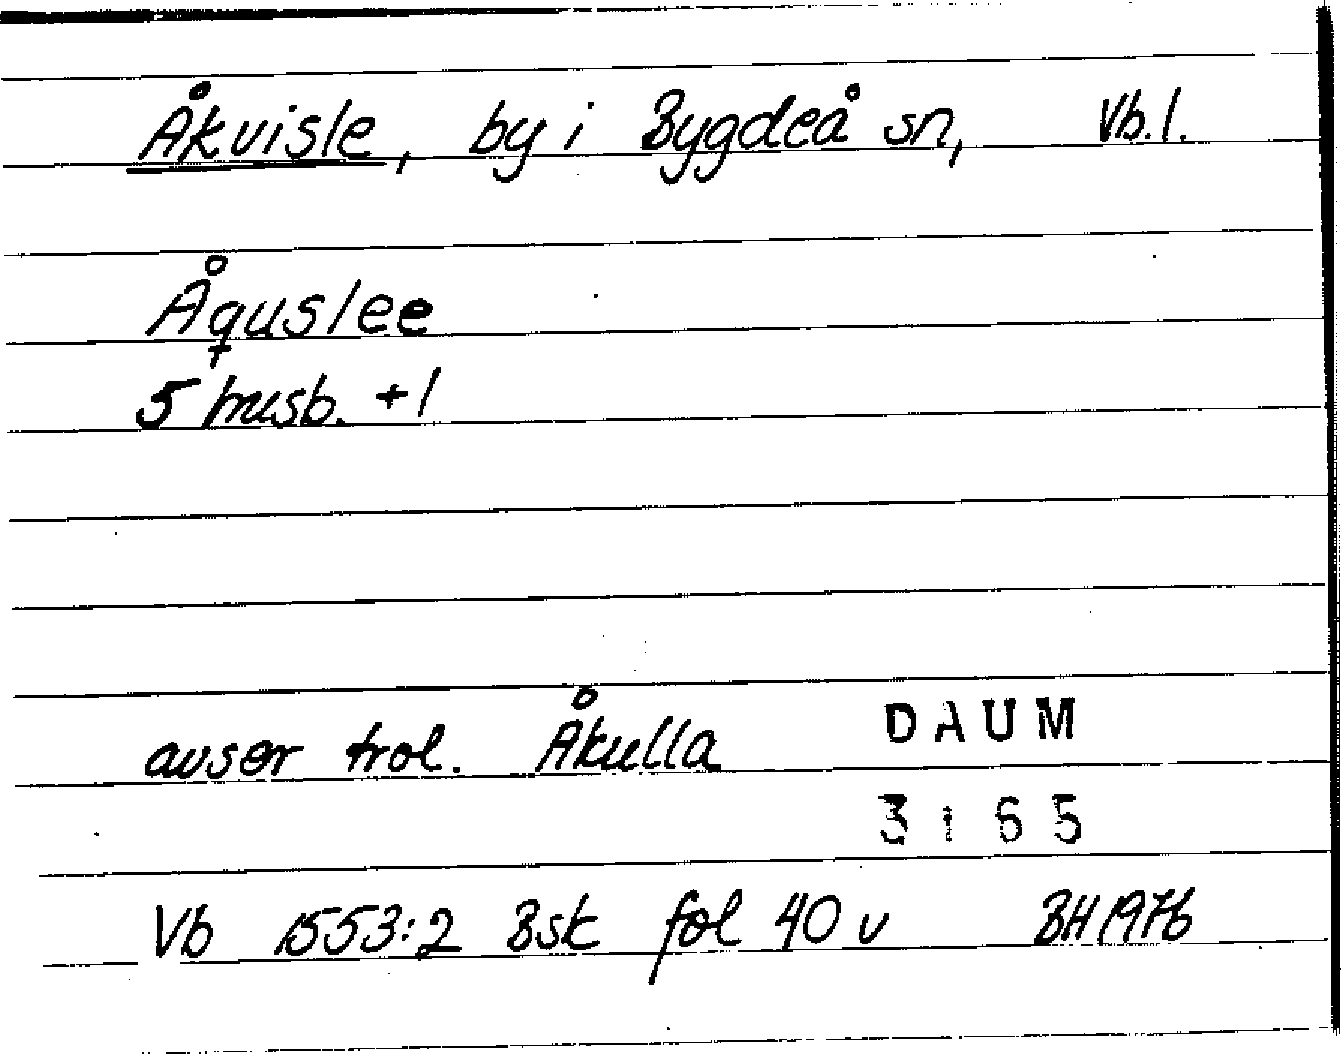 Åkvisle, by i Bygdeå sn, Vb.l.
Åquslee
5 husb. +1
avser trol. Åkulla
DAUM
3165
Vb 1553:2 Bsk fol 40 v BH 1976